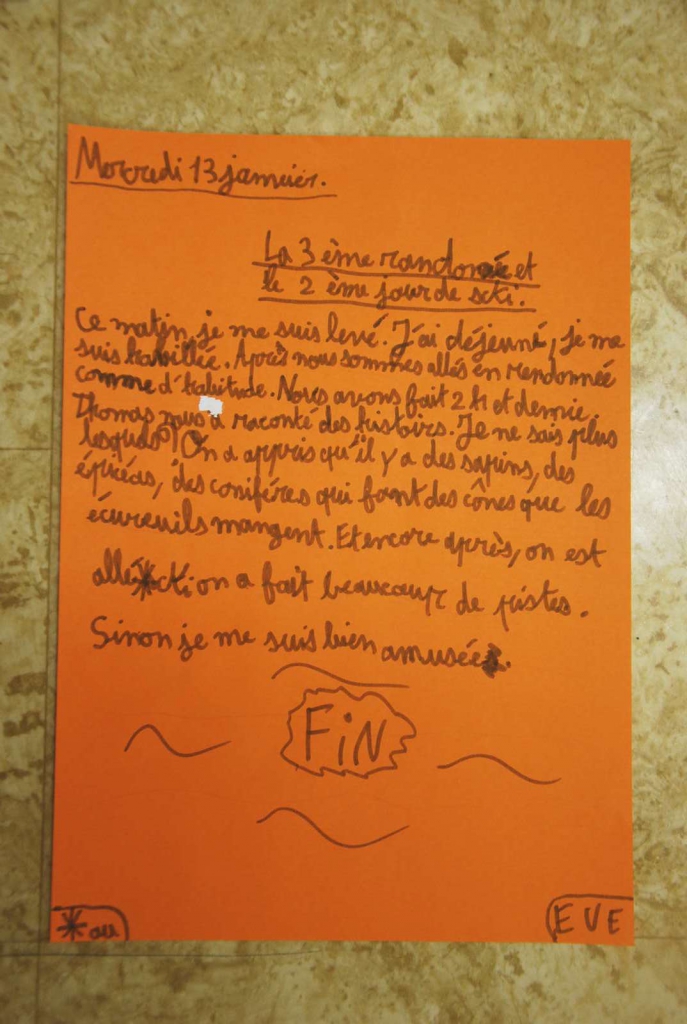 Mercredi 13 janvier.
La 3 ème randonée et
le 2 ème jour de ski.
Ce matin je me suis levé. J'ai déjeunné, je me
suis habillée. Après nous sommes allés en rendonnée
comme d'habitude. Nous avons fait 2 h et demie.
Thomas nous a raconté des histoirs. Je ne sais plus
lesquas? On a appris qu'il y a des sapins, des
épicéas, des conifères qui font des cônes que les
écureuils mangent. Et encore après, on est
allé*ski on a fait beaucoup de pistes.
Sinon je me suis bien amusée.
FiN
*au
EVE